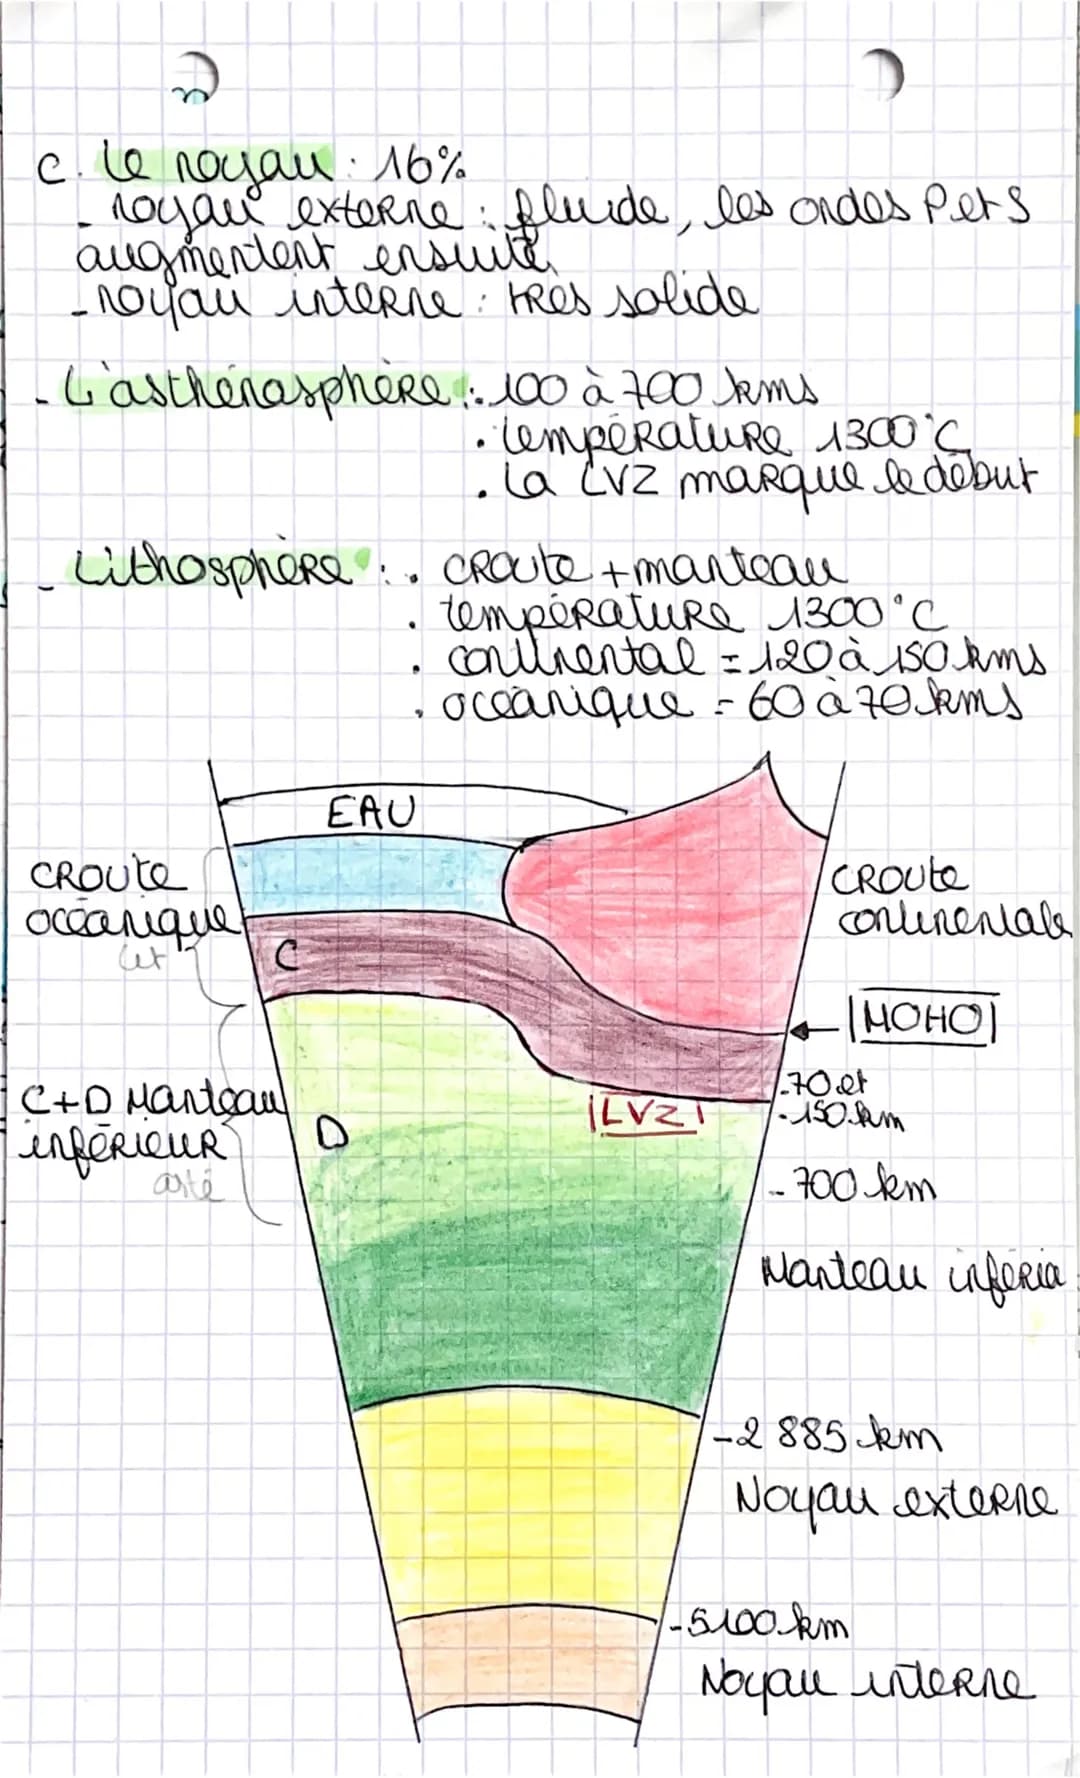 c. le noyau : 16%
- noyau externe : fluide, les ondes P et S
augmentent ensuite
- noyau interne : très solide
- L'asthénosphère : . 100 à 700 kms
. température 1300°C
. la LVZ marque le début
- Lithosphère : . croute + manteau
. température 1300°C
. continental = 120 à 150 kms
. océanique = 60 à 70 kms
EAU
croute
océanique
C
croute
continentale
MOHO
-70 et
-150 km
LVZ
C+D Manteau
inférieur
D
- 700 km
Manteau inféria
-2 885 km
Noyau externe
-5100 km
Noyau interne